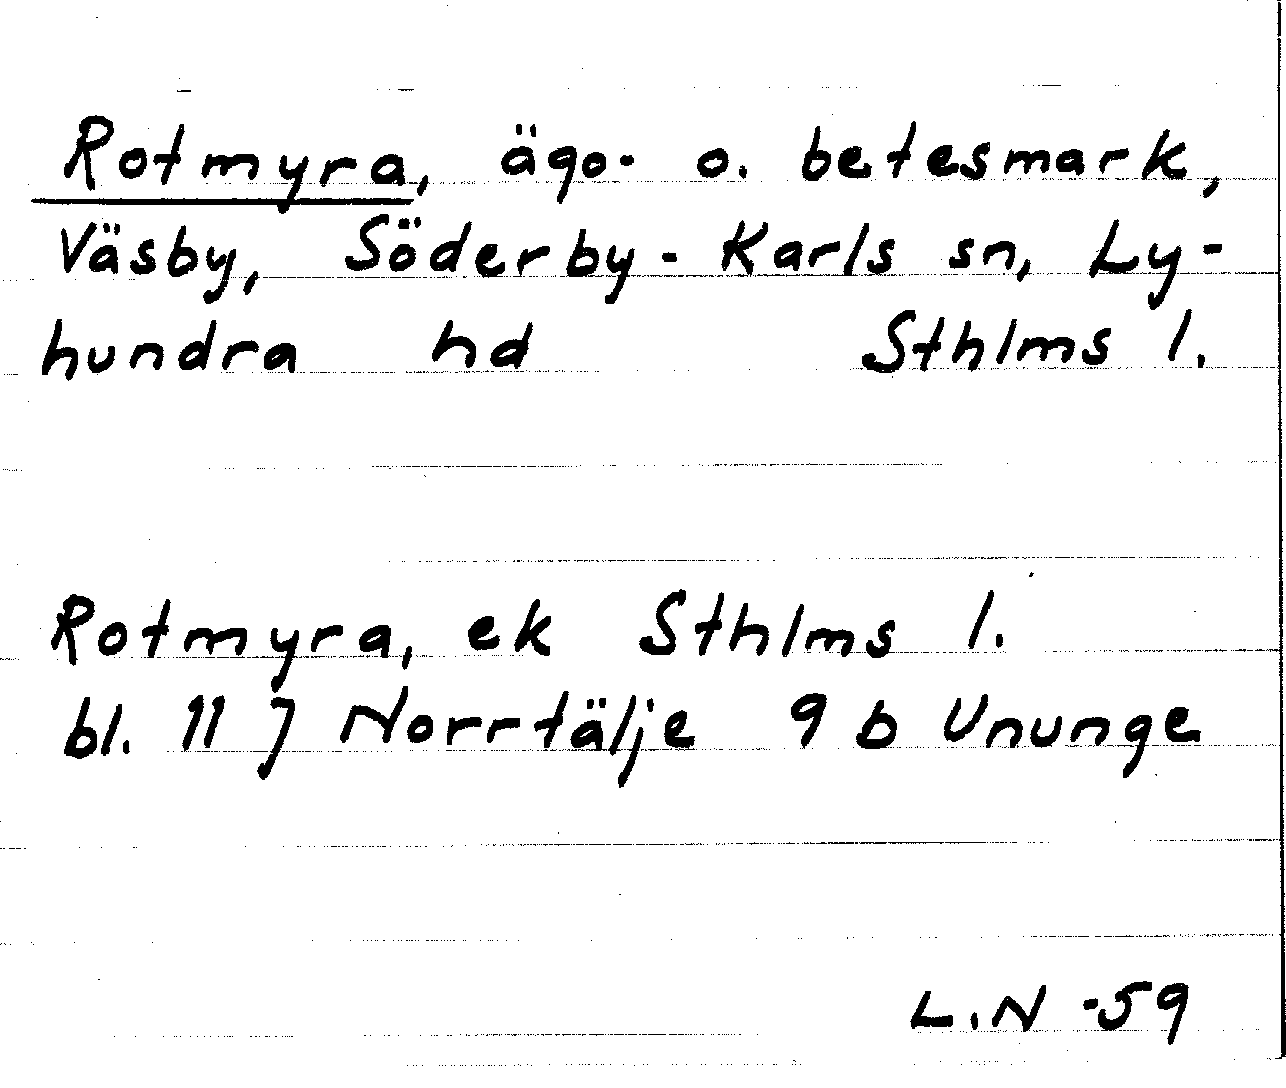 Rotmyra, ägo- o. betesmark,
Väsby, Söderby-Karls sn, Ly-
hundra hd Sthlms l.
Rotmyra, ek Sthlms l.
bl. 11 J Norrtälje 9 b Ununge
L.N -59